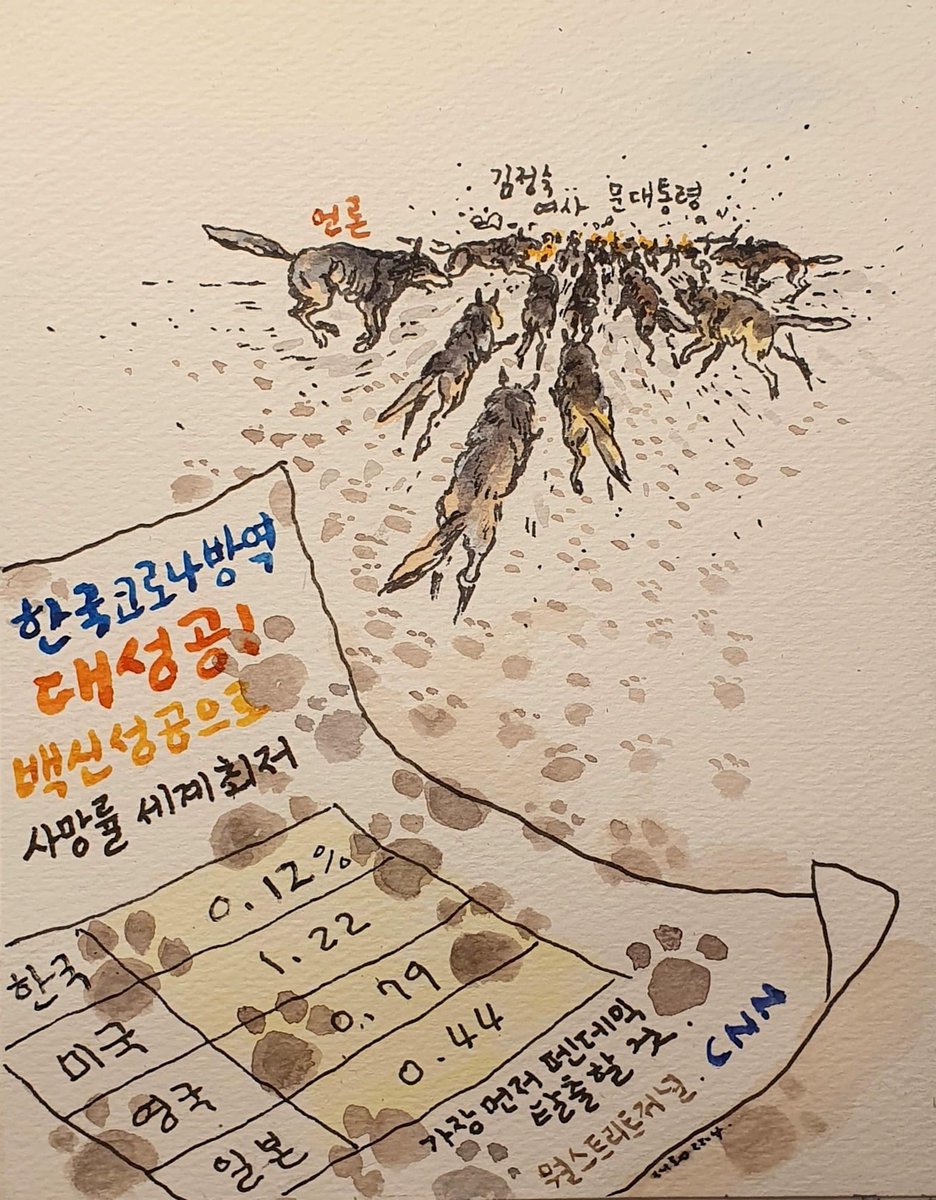 언론
김정숙
여사
문대통령
한국코로나방역
대성공!
백신성공으로
사망률 세계최저
한국 0.12%
미국 1.22
영국 0.79
일본 0.44
가장 먼저 펜데믹
탈출할 곳.
CNN
월스트리트저널.